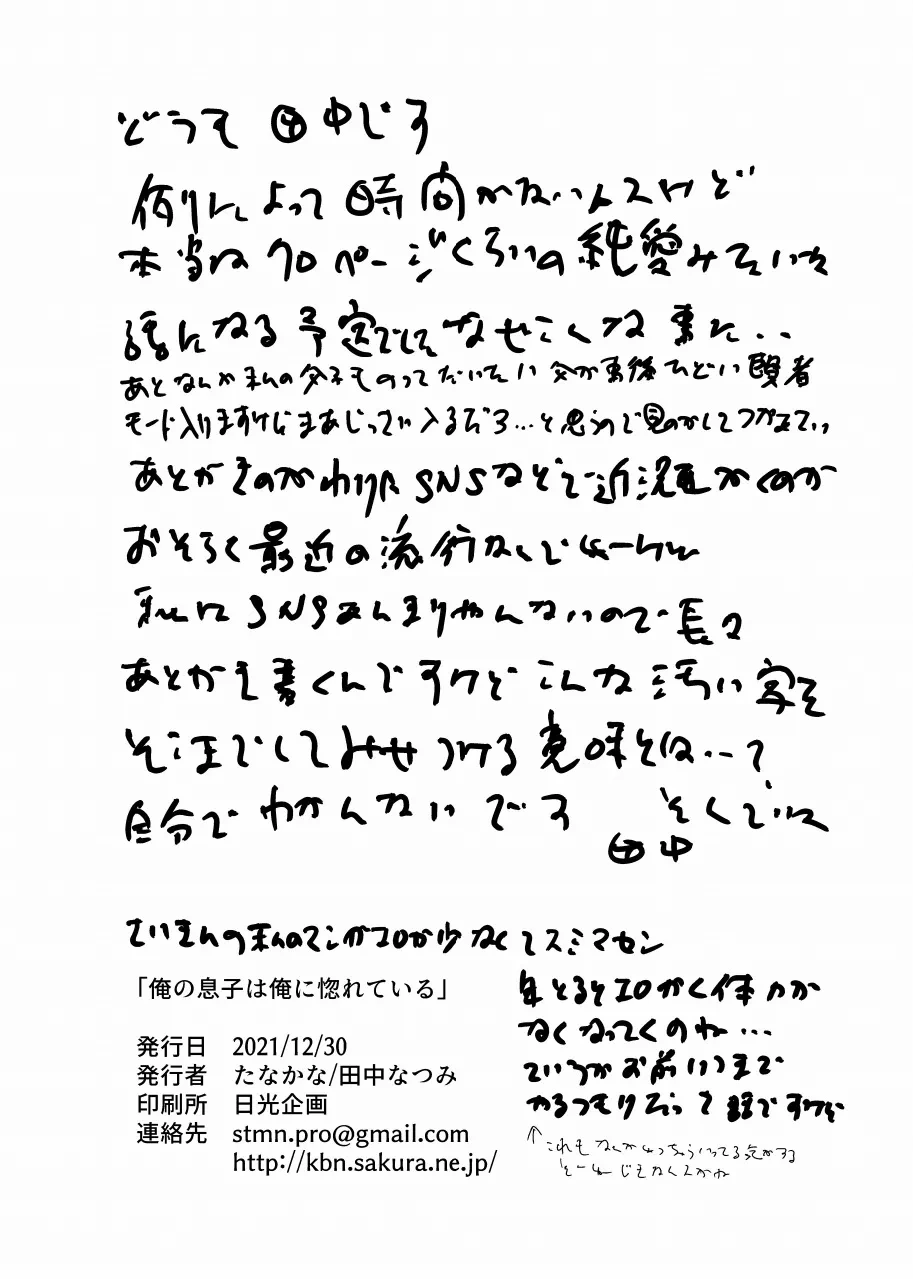 どうも 田中です
例によって時間がないんスけど
本当は70ページくらいの純愛みたいな
話になる予定でして なぜこんな事に..
あとなんか私の父子ものってだいたい 父が事後ひどい賢者
モード入りますけどまあじっさい入るだろ…と思うので見のがしてつかあさい
あとがきのかわりに SNSなどで近況かくのが
おそらく最近の流行なんで
私は SNSあんまりやんないので 長々
あとがき書くんですけど こんな汚い字を
そこまでしてみせつける意味とは..?
自分で わかんないです
田中
さいきんの私のマンガエロが少なくてスミマセン
年とるとエロかく体力が
なくなってくのね…
ていうかお前いつまで
かくつもりだって話ですけど
「俺の息子は俺に惚れている」
発行日 2021/12/30
発行者 たなかな/田中なつみ
印刷所 日光企画
連絡先 stmn.pro@gmail.com
http://kbn.sakura.ne.jp/
↑これも なんか いってる気がする